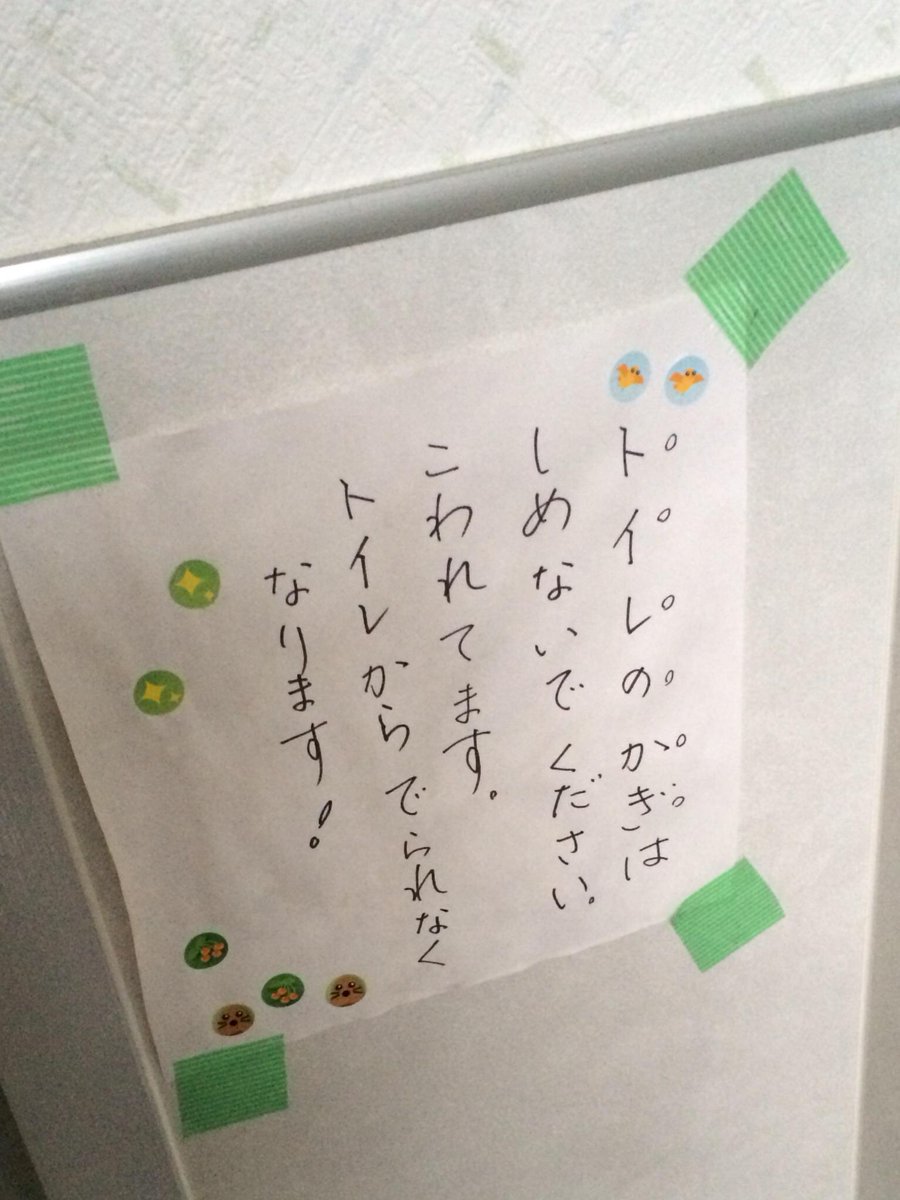 トイレのかぎは
しめないでください。
こわれてます。
トイレからでられなく
なります!